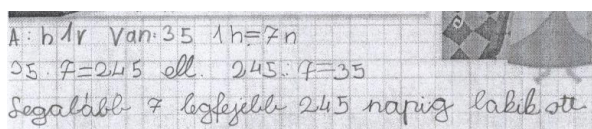 A: h 1r Van: 35 1h=7n
35 · 7=245 ell. 245:7=35
Legalább 7 legfejebb 245 napig lakik ott